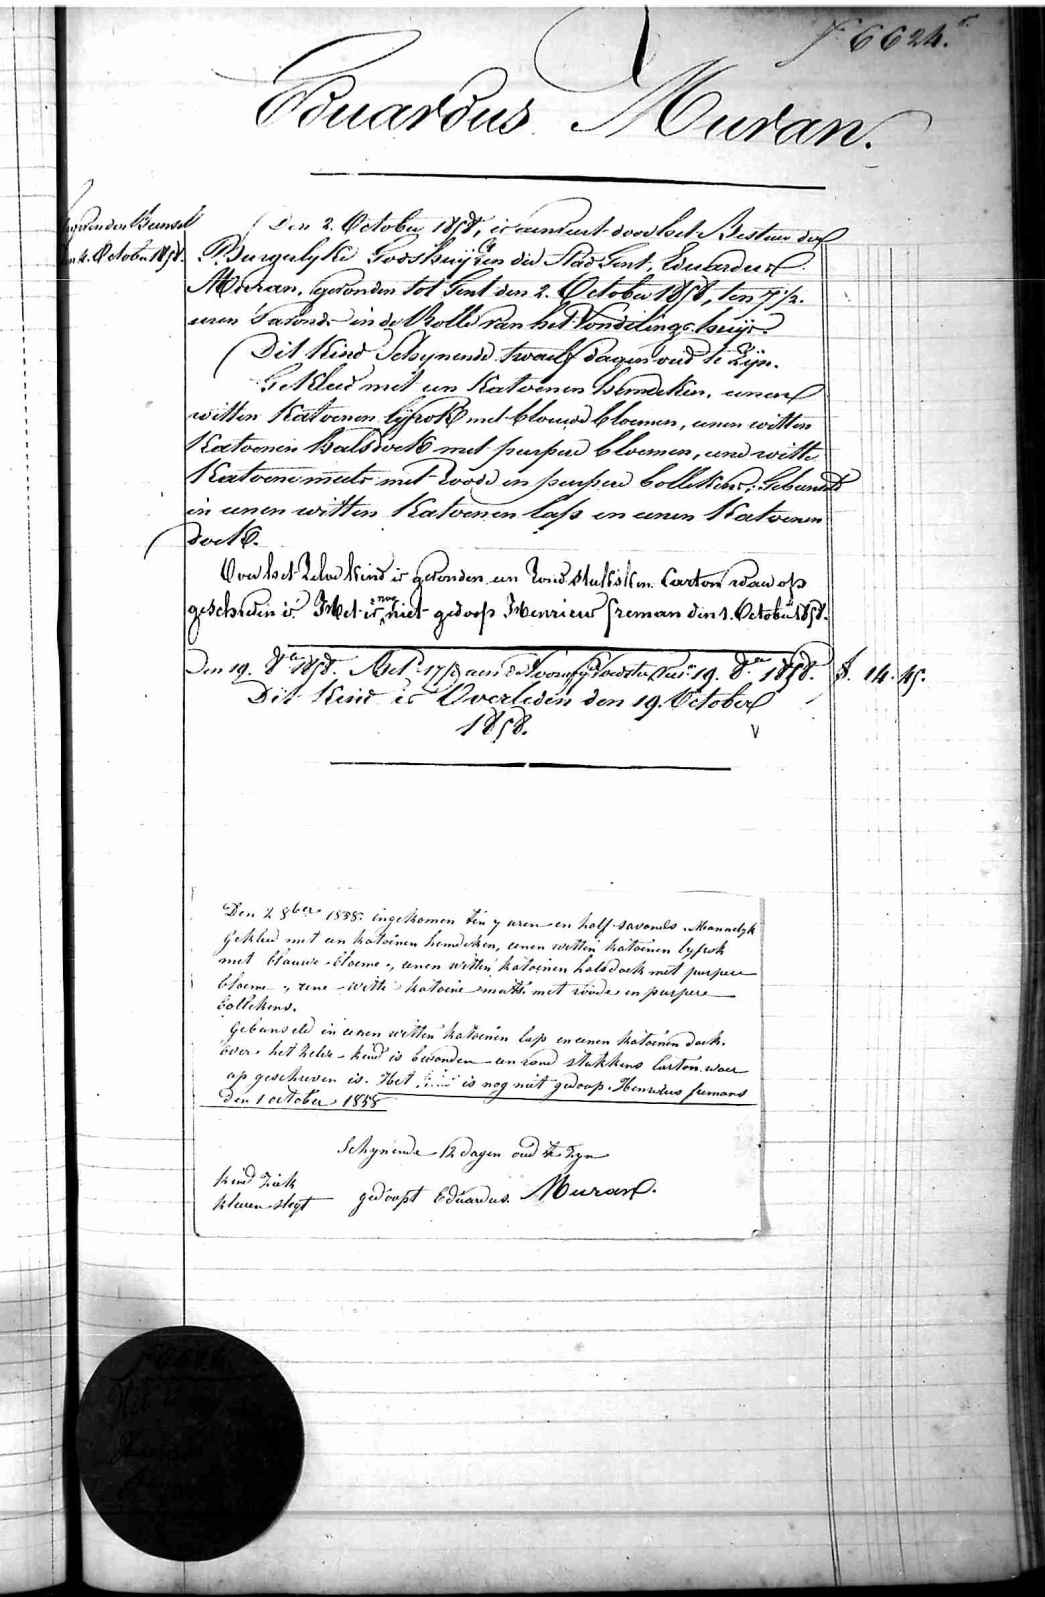 f° 6624.
Eduardus Muran.
Den 2. October 1858, is aenveert door het Bestuer der
Burgerlyke Godshuyzen der Stad Gent, Eduardus
Muran, gevonden tot Gent den 2. October 1858, ten 7 1/2
uren 's avonds in de Rolle van het Vondelings huys.
Dit Kind Schynende twaelf dagen oud te Zyn.
Gekleed met een Katoenen hemdeken, eenen
witten Katoenen lyfrok met blauwe bloemen, eenen witten
Katoenen halsdoek met purpere bloemen, eene witte
Katoene muts met roode en purpere bollekens, Gebunseld
in eenen witten Katoenen lap en eenen Katoenen
doek.
Over het Zelve Kind is gevonden een Rond stukksken Carton waer op
geschreven is Het is nog niet gedoop Henricus freman den 1. October 1858.
Den 19. 8er 1858. 19. 8er 1858. f. 14. 45.
Dit Kind is Overleden den 19. October
1858.
Den 2 8ber 1858 ingekomen ten 7 uren en half savonds Mannelyk
Gekleed met een katoenen hemdeken, eenen witten katoenen lyfrok
met blauwe bloeme, eenen witten katoenen halsdoek met purpere
bloeme, eene witte katoene muts met roode en purpere
bollekens.
Gebunseld in eenen witten katoenen lap en eenen katoenen doek.
over het zelve kind is bevonden een rond stukkens carton waer
op geschreven is. Het is nog niet gedoop Henricus fremans
den 1 october 1858
Schynende 12 dagen oud te Zyn
kind Ziek
kleeren slegt gedoopt Eduardus Muran.